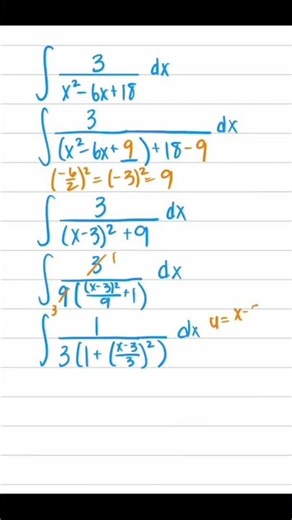 ∫ 3/(x²-6x+18) dx
∫ 3/((x²-6x+9)+18-9) dx
(-6/2)²=(-3)²=9
∫ 3/((x-3)²+9) dx
∫ 3 1/(9 3((x-3)²/9+1)) dx
∫ 1/(3(1+((x-3)/3)²)) dx u=x-